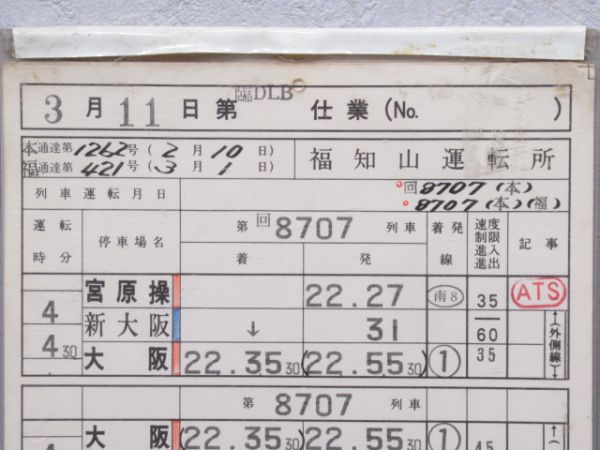 3月11日第 臨DLB 仕業(No. )
本通達第1262号(2月10日)
福通達第421号(3月1日)
福知山運転所
列車運転月日
回8707(本)
8707(本)(福)
運転時分 停車場名 第回8707列車 着 発 着発線 速度制限進入進出 記事
宮原操 22.27 南8 35 ATS
4
新大阪 ↓ 31 60
4 30
大阪 22.35 30 (22.55 30) ① 35
↑(外側線)↓
第8707列車
4 大阪 (22.35 30) 22.55 30 ① 45